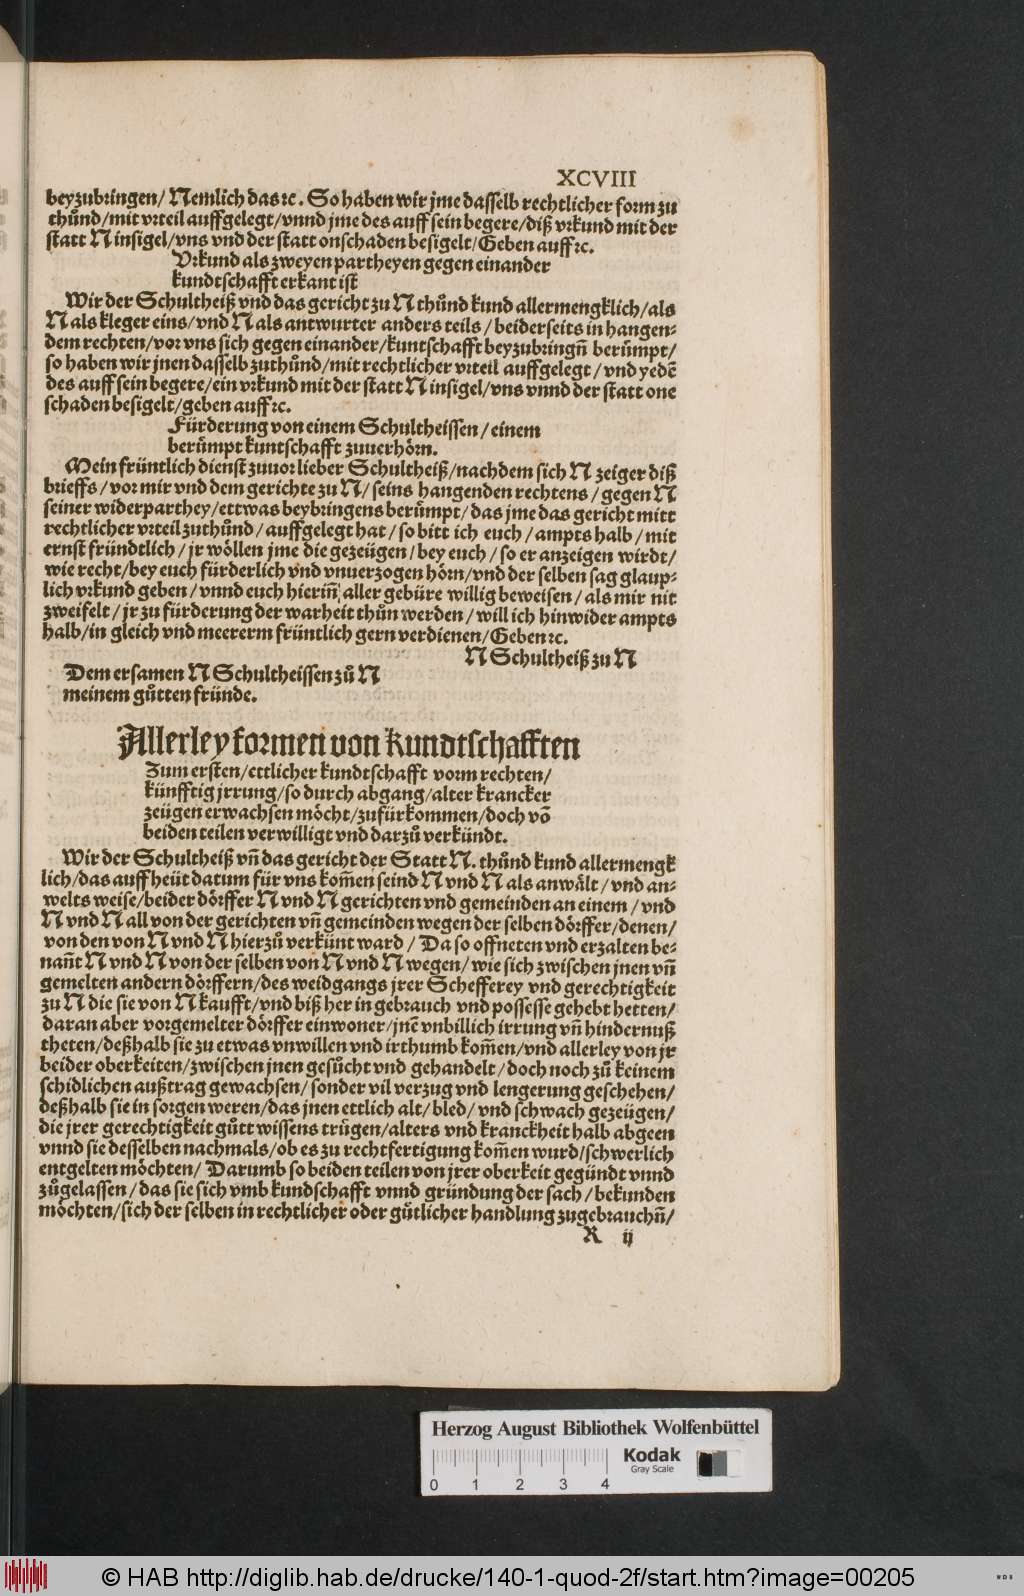 XCVIII
beyzubringen/ Nemlich das ꝛc. So haben wir jme dasselb rechtlicher form zu
thůnd/mit vrteil auffgelegt/vnnd jme des auff sein begere/diß vrkund mit der
statt N insigel/vns vnd der statt onschaden besigelt/Geben auff ꝛc.
Vrkund als zweyen partheyen gegen einander
kundtschafft erkant ist
Wir der Schultheiß vnd das gericht zu N thůnd kund allermengklich/als
N als kleger eins/vnd N als antwurter anders teils/beiderseits in hangen⸗
dem rechten/vor vns sich gegen einander/kuntschafft beyzubringñ berůmpt/
so haben wir jnen dasselb zuthůnd/mit rechtlicher vrteil auffgelegt/vnd yedẽ
des auff sein begere/ein vrkund mit der statt N insigel/vns vnnd der statt one
schaden besigelt/geben auff ꝛc.
Fürderung von einem Schultheissen/einem
berůmpt kuntschafft zuuerhörn.
Mein früntlich dienst zuuor lieber Schultheiß/nachdem sich N zeiger diß
brieffs/vor mir vnd dem gerichte zu N/seins hangenden rechtens/gegen N
seiner widerparthey/ettwas beybringens berůmpt/das jme das gericht mitt
rechtlicher vrteil zuthůnd/auffgelegt hat/so bitt ich euch/ampts halb/mit
ernst fründtlich/jr wöllen jme die gezeügen/bey euch/so er anzeigen wirdt/
wie recht/bey euch fürderlich vnd vnuerzogen hörn/vnd der selben sag glaup⸗
lich vrkund geben/vnnd euch hieriñ aller gebüre willig beweisen/als mir nit
zweifelt/jr zu fürderung der warheit thůn werden/will ich hinwider ampts
halb/in gleich vnd meererm früntlich gern verdienen/Geben ꝛc.
N Schultheiß zu N
Dem ersamen N Schultheissen zů N
meinem gůtten fründe.
Allerley formen von kundtschafften
Zum ersten/ettlicher kundtschafft vorm rechten/
künfftig jrrung/so durch abgang/alter krancker
zeügen erwachsen möcht/zufürkommen/doch võ
beiden teilen verwilligt vnd darzů verkündt.
Wir der Schultheiß vñ das gericht der Statt N. thůnd kund allermengk
lich/das auff heüt datum für vns kom̃en seind N vnd N als anwält/vnd an⸗
welts weise/beider dörffer N vnd N gerichten vnd gemeinden an einem/vnd
N vnd N all von der gerichten vñ gemeinden wegen der selben dörffer/denen/
von den von N vnd N hierzů verkünt ward/Da so offneten vnd erzalten be⸗
nañt N vnd N von der selben von N vnd N wegen/wie sich zwischen jnen vñ
gemelten andern dörffern/des weidgangs jrer Schefferey vnd gerechtigkeit
zu N die sie von N kaufft/vnd biß her in gebrauch vnd possesse gehebt hetten/
daran aber vorgemelter dörffer einwoner/jnẽ vnbillich irrung vñ hindernuß
theten/deßhalb sie zu etwas vnwillen vnd irthumb kom̃en/vnd allerley von jr
beider oberkeiten/zwischen jnen gesůcht vnd gehandelt/doch noch zů keinem
schidlichen außtrag gewachsen/sonder vil verzug vnd lengerung geschehen/
deßhalb sie in sorgen weren/das jnen ettlich alt/bled/vnd schwach gezeügen/
die jrer gerechtigkeit gůtt wissens trügen/alters vnd kranckheit halb abgeen
vnnd sie desselben nachmals/ob es zu rechtfertigung kom̃en wurd/schwerlich
entgelten möchten/Darumb so beiden teilen von jrer oberkeit gegündt vnnd
zůgelassen/das sie sich vmb kundschafft vnnd gründung der sach/bekunden
möchten/sich der selben in rechtlicher oder gůtlicher handlung zugebrauchñ/
R ij
Herzog August Bibliothek Wolfenbüttel
0 1 2 3 4
Kodak
Gray Scale
© HAB http://diglib.hab.de/drucke/140-1-quod-2f/start.htm?image=00205